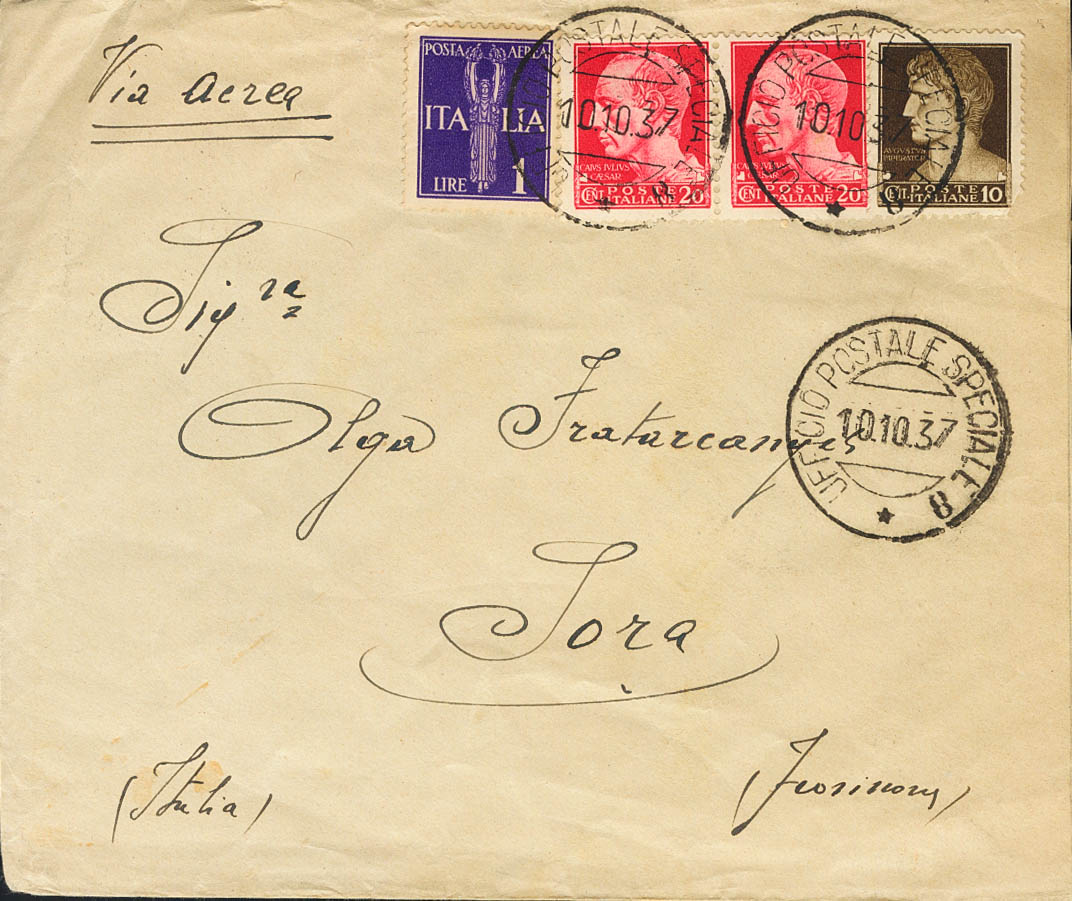 Via aerea
POSTA AEREA
ITALIA
LIRE 1
CAIVS IVLIVS
CÆSAR
CENT. POSTE ITALIANE 20
CAIVS IVLIVS
CÆSAR
CENT. POSTE ITALIANE 20
AVGVSTVS
IMPERATOR
CENT. POSTE ITALIANE 10
UFFICIO POSTALE SPECIALE 8
10.10.37
UFFICIO POSTALE SPECIALE 8
10.10.37
Sigra
Olga Fratarcangeli
UFFICIO POSTALE SPECIALE 8
10.10.37
Sora
(Italia)
(Frosinone)